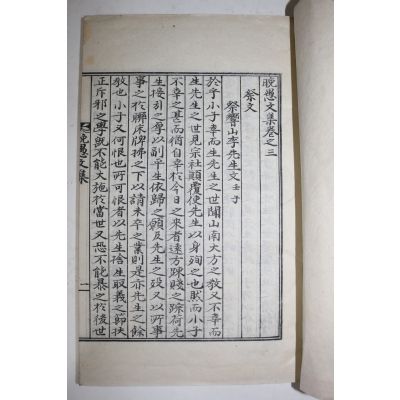 晚愚文集卷之三
祭文
祭響山李先生文 壬子
於乎小子幸而生先生之世聞山南大方之敎又不幸而
生先生之世見宗社顚覆使先生以身殉之也然而小子
不幸之甚而猶自幸於今日之來者遠方踈賤之跡荷先
生接引之厚以副平生依歸之願及先生之歿又以所事
事之於聯床牌拂之下以請未卒之業則是亦先生之餘
敎也小子又何恨也所可恨者以先生捨生取義之節扶
正斥邪之學旣不能大施於當世又恐不能暴之於後世
晚愚文集
一